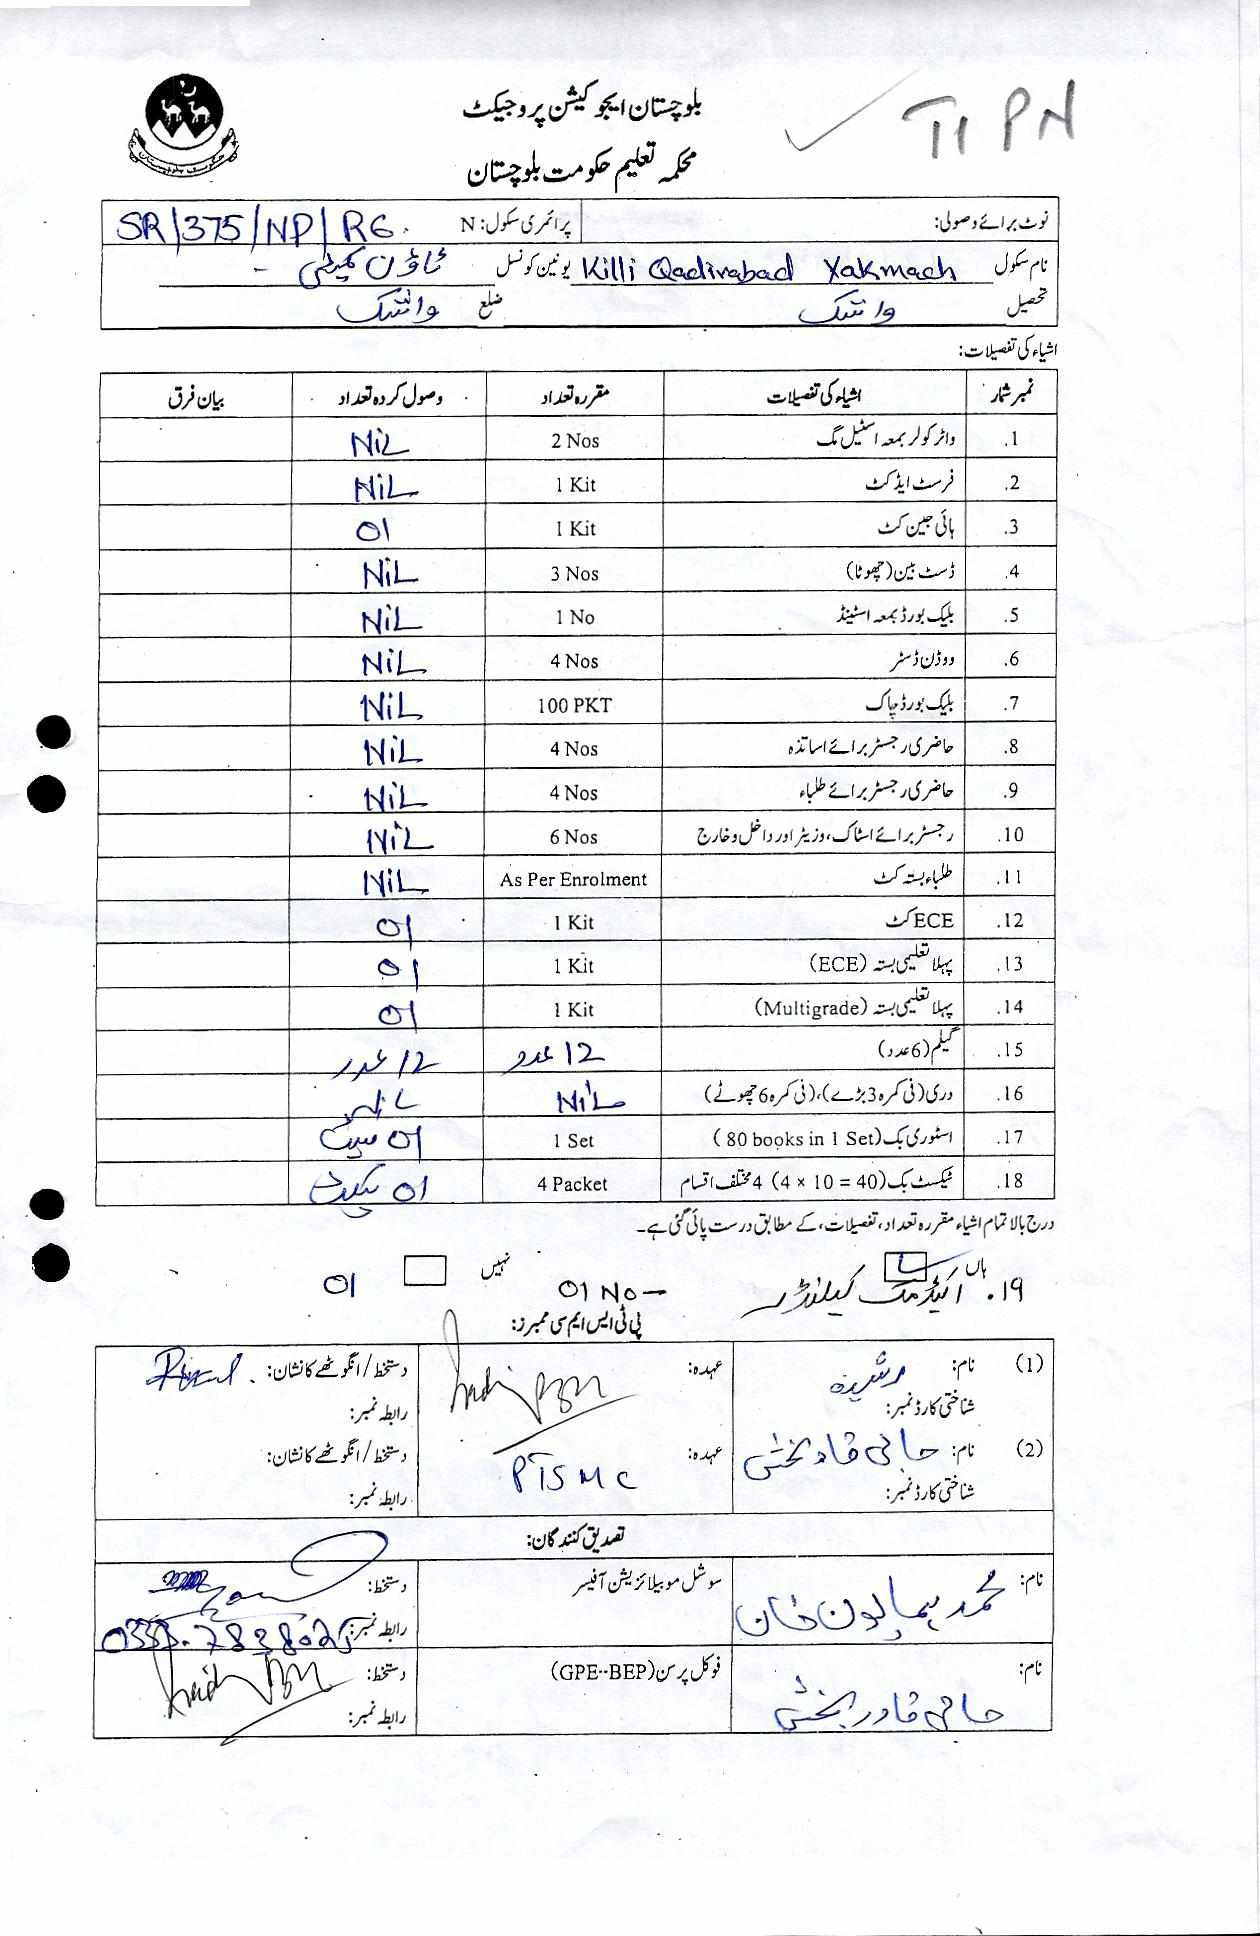 بلوچستان ایجوکیشن پروجیکٹ
TI PN
محکمہ تعلیم حکومت بلوچستان
نوٹ برائے وصولی: پرائمری سکول: N SR/375/NP/RG.
نام سکول Killi Qadirabad Yakmach یونین کونسل ٹاؤن کمیٹی -
تحصیل واشک ضلع واشک
اشیاء کی تفصیلات:
نمبر شمار اشیاء کی تفصیلات مقررہ تعداد وصول کردہ تعداد بیان فرق
1. واٹر کولر بمعہ اسٹیل مگ 2 Nos NiL
2. فرسٹ ایڈ کٹ 1 Kit NiL
3. ہائی جین کٹ 1 Kit 01
4. ڈسٹ بین (چھوٹا) 3 Nos NiL
5. بلیک بورڈ بمعہ اسٹینڈ 1 No NiL
6. ووڈن ڈسٹر 4 Nos NiL
7. بلیک بورڈ چاک 100 PKT NiL
8. حاضری رجسٹر برائے اساتذہ 4 Nos NiL
9. حاضری رجسٹر برائے طلباء 4 Nos NiL
10. رجسٹر برائے اسٹاک، وزیٹر اور داخل و خارج 6 Nos NiL
11. طلباء بستہ کٹ As Per Enrolment NiL
12. ECE کٹ 1 Kit 01
13. پہلا تعلیمی بستہ (ECE) 1 Kit 01
14. پہلا تعلیمی بستہ (Multigrade) 1 Kit 01
15. گیلم (6 عدد) 12 عدد 12 عدد
16. دری (فی کمرہ 3 بڑے)، (فی کمرہ 6 چھوٹے) NiL
17. اسٹوری بک (80 books in 1 Set) 1 Set 01 سیٹ
18. ٹیکسٹ بک (4 × 10 = 40) 4 مختلف اقسام 4 Packet 01 پیکٹ
درج بالا تمام اشیاء مقررہ تعداد، تفصیلات، کے مطابق درست پائی گئی ہے۔
ہاں نہیں
۱۹. اکیڈمک کیلنڈر 01 No - 01
پی ٹی ایس ایم سی ممبرز:
(1) نام: رشیدہ عہدہ: دستخط/انگوٹھے کا نشان:
شناختی کارڈ نمبر: رابطہ نمبر:
(2) نام: حاجی قادر بخش عہدہ: PTSMC دستخط/انگوٹھے کا نشان:
شناختی کارڈ نمبر: رابطہ نمبر:
تصدیق کنندگان:
نام: محمد ہمایون خان سوشل موبیلائزیشن آفیسر دستخط:
رابطہ نمبر:
نام: حاجی قادر بخش فوکل پرسن (GPE--BEP) دستخط:
رابطہ نمبر: